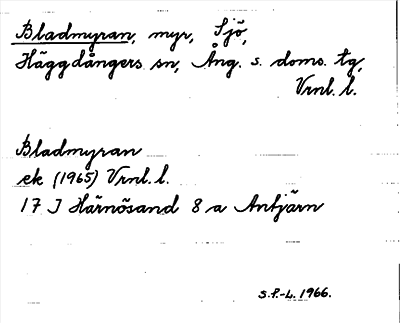 Bladmyran, myr, Sjö,
Häggdångers sn, Ång. s. doms. tg,
Vrnl. l.
Bladmyran
ek (1965) Vrnl. l.
17 J Härnösand 8 a Antjärn
S.F.-L. 1966.